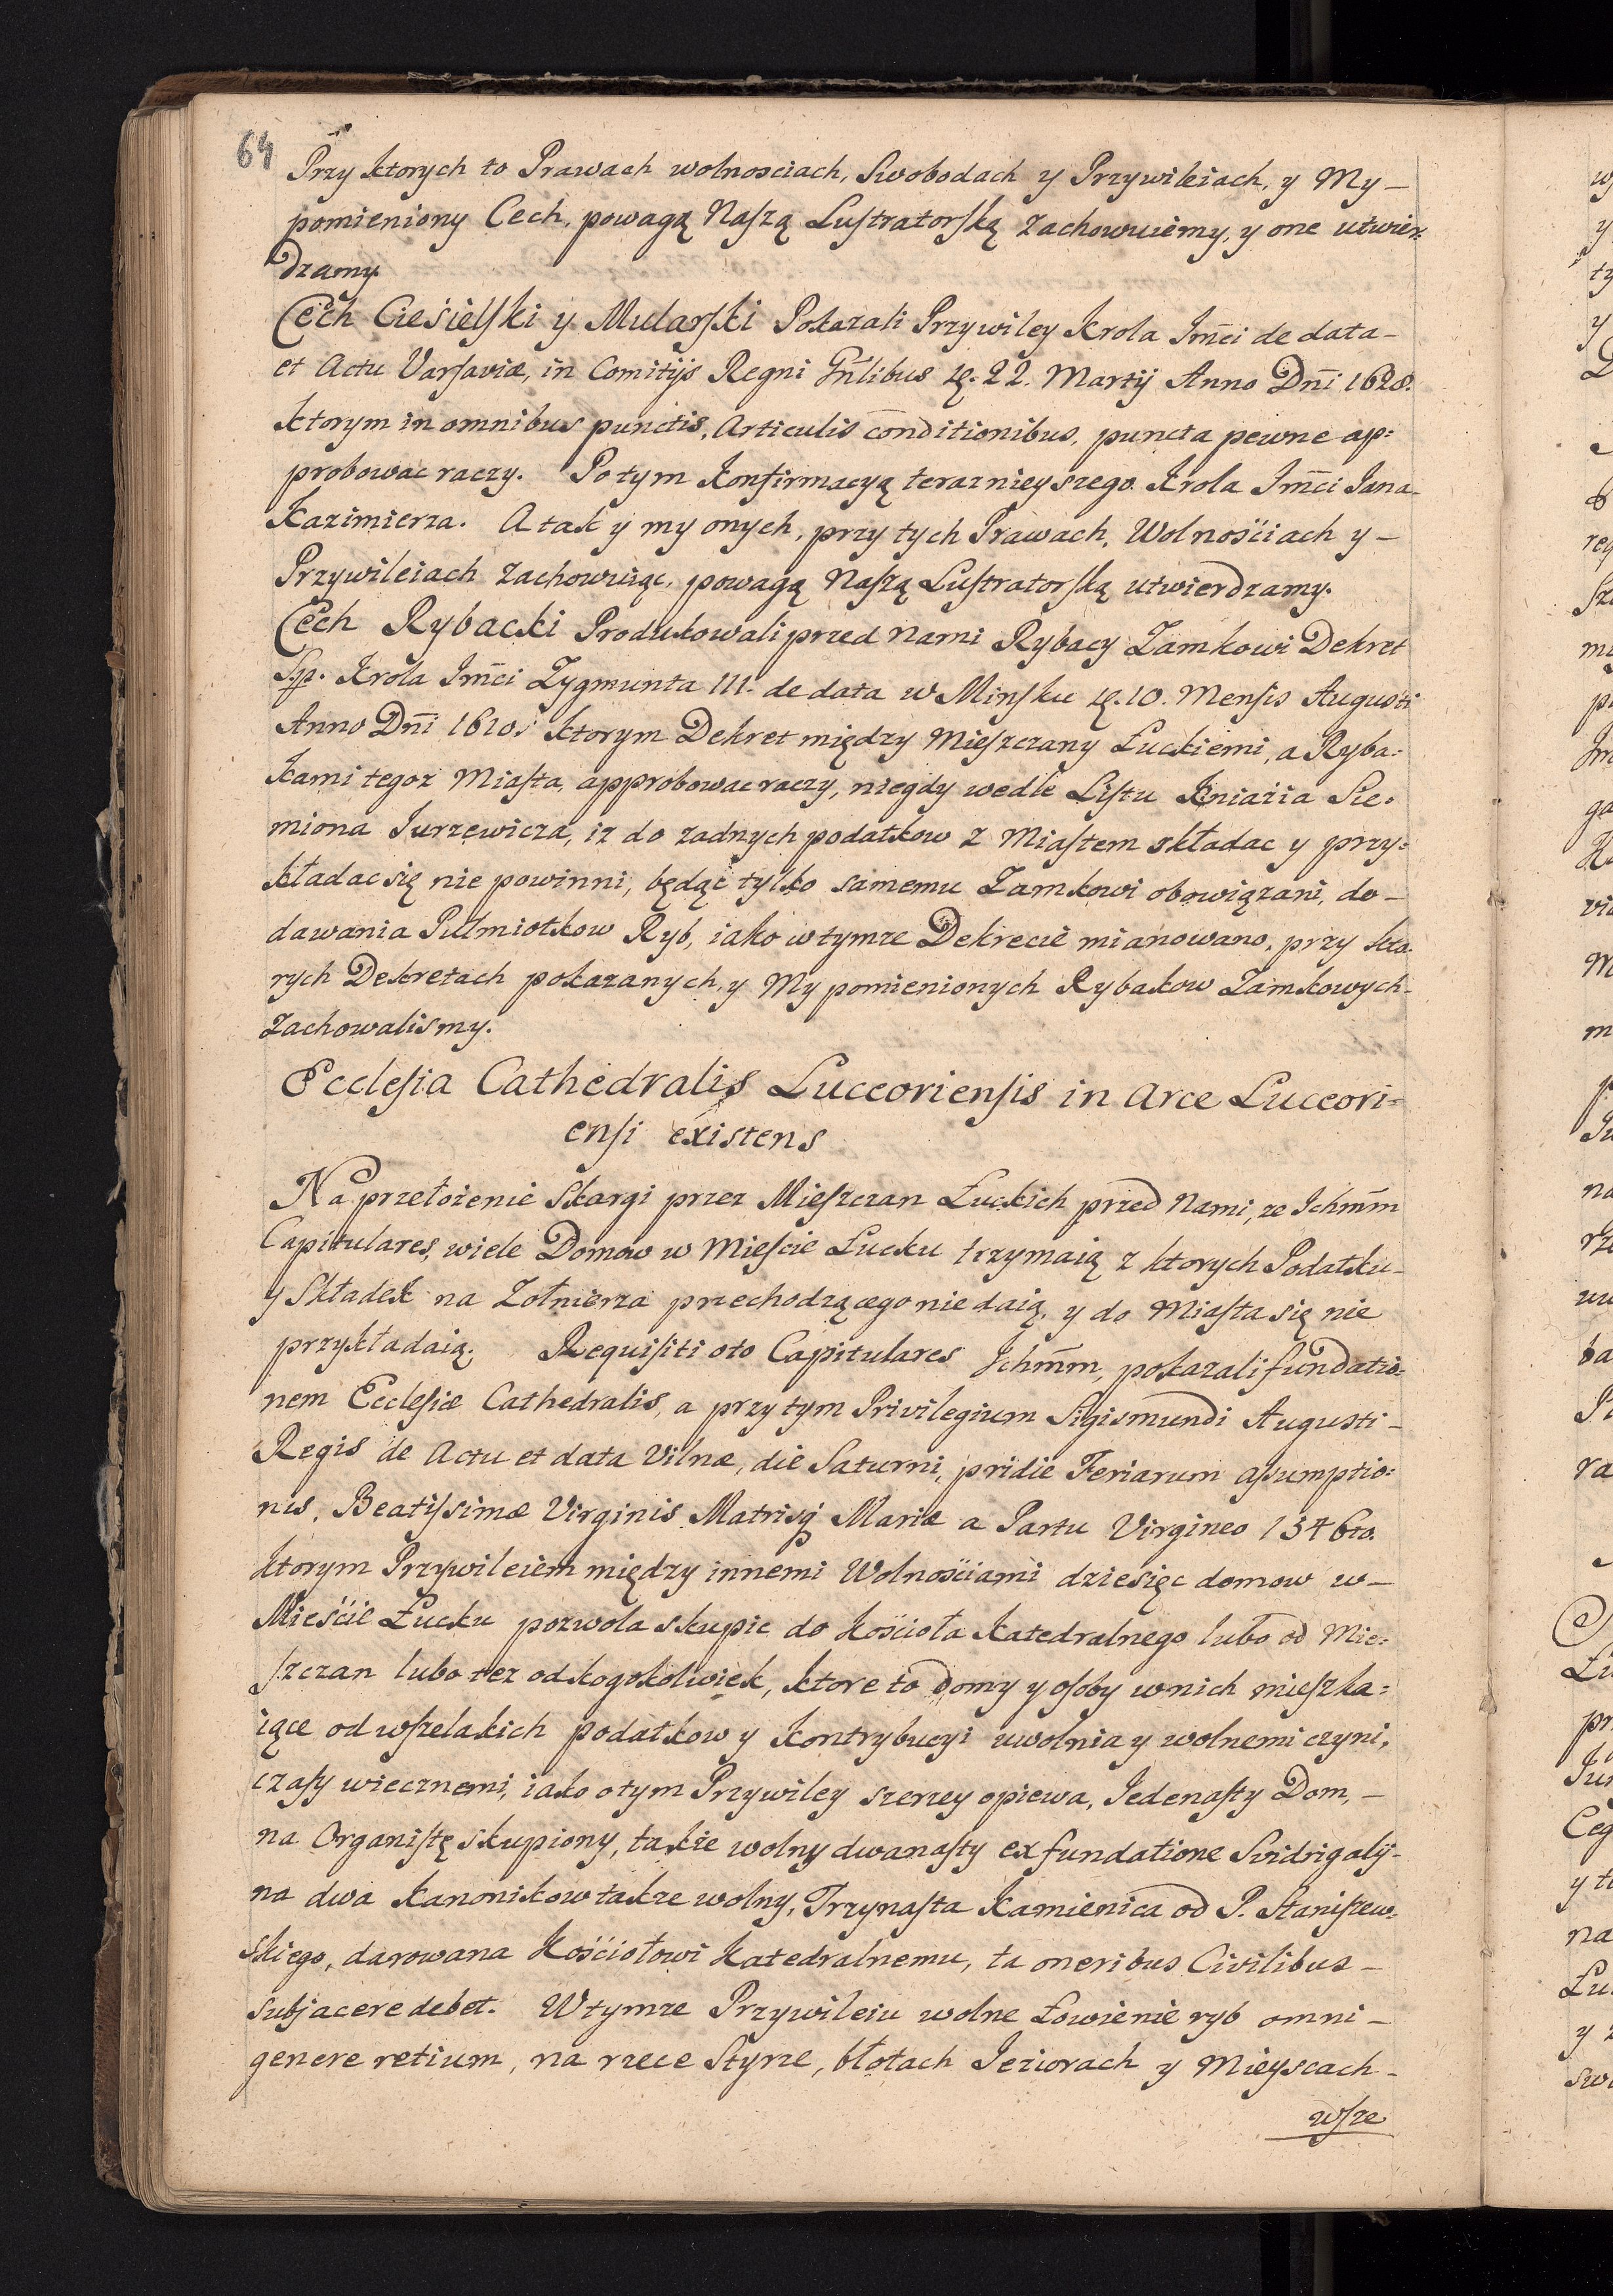 64
Przy ktorych to Prawach wolnosciach, Swobodach y Przywileiach, y My –
pomieniony Cech, powagą Naszą Lustratorską zachowuiemy, y one utwier:
dzamy.
Cech Ciesielski y Mularski Pokazali Przywiley Krola Jmći de data –
et Actu Varsaviæ, in Comitijs Regni Gn̄libus 22. Martij Anno Dn̄i 1628.
ktorym in omnibus punctis, Articulis conditionibus, puncta pewne ap:
probowac raczy. Potym Konfirmacyą teraznieyszego Krola Jmći Jana
Kazimierza. A tak y my onych, przy tych Prawach, Wolnościach y –
Przywileiach zachowuiąc, powagą Naszą Lustratorską utwierdzamy.
Cech Rybacki Produkowali przed Nami Rybacy Zamkowi Dekret
Sp. Krola Jmći Zygmunta III. de data w Minsku 10. Mensis Augusti
Anno Dn̄i 1610. ktorym Dekret między Mieszczany Łuckiemi, a Ryba:
kami tegoz Miasta, approbowac raczy, niegdy wedle Listu Kniazia Sie:
miona Jurzewicza, iz do zadnych podatkow z Miastem składac y przy:
kładac się nie powinni, będąc tylko samemu Zamkowi obowiązani, do –
dawania Pułmiotkow Ryb, iako w tymze Dekrecie mianowano, przy kto:
rych Dekretach pokazanych, y My pomienionych Rybakow Zamkowych –
zachowalismy.
Ecclesia Cathedralis Luceoriensis in Arce Luceori=
ensi existens
Na przełożenie Skargi przez Mieszczan Łuckich przed Nami, ze Jchmm
Capitulares, wiele Domow w Miescie Łucku trzymaią z ktorych Podatku –
y Składek na Zołnierza przechodzącego nie daią, y do Miasta się nie
przykładaią. Requisiti oto Capitulares Jchmm, pokazali fundatio:
nem Ecclesiæ Cathedralis, a przy tym Privilegium Sigismundi Augusti –
Regis de Actu et data Vilnæ, die Saturni, pridie Feriarum Assumptio:
nis, Beatissimæ Virginis Matrisq Mariæ a Partu Virgineo 1546to.
ktorym Przywileiem między innemi Wolnościami dziesięc domow w –
Mieście Łucku pozwola skupic do Kościoła Katedralnego lubo od Mie:
szczan lubo tez od kogokolwiek, ktore to domy y osoby w nich mieszka:
iące od wszelakich podatkow y kontrybucyi uwolnia y wolnemi czyni,
czasy wiecznemi, iako o tym Przywiley szerzey opiewa, Jedenasty Dom, –
na Organistę skupiony, takze wolny dwanasty ex fundatione Svidrigalij –
na dwa Kanonikow takze wolny, Trzynasta Kamienica od P. Staniszew:
skiego, darowana Kościołowi Katedralnemu, ta oneribus Civilibus –
subjacere debet. W tymze Przywileiu wolne Łowienie ryb omni –
genere retium, na rzece Styrze, błotach Jeziorach y Mieyscach –
wsze